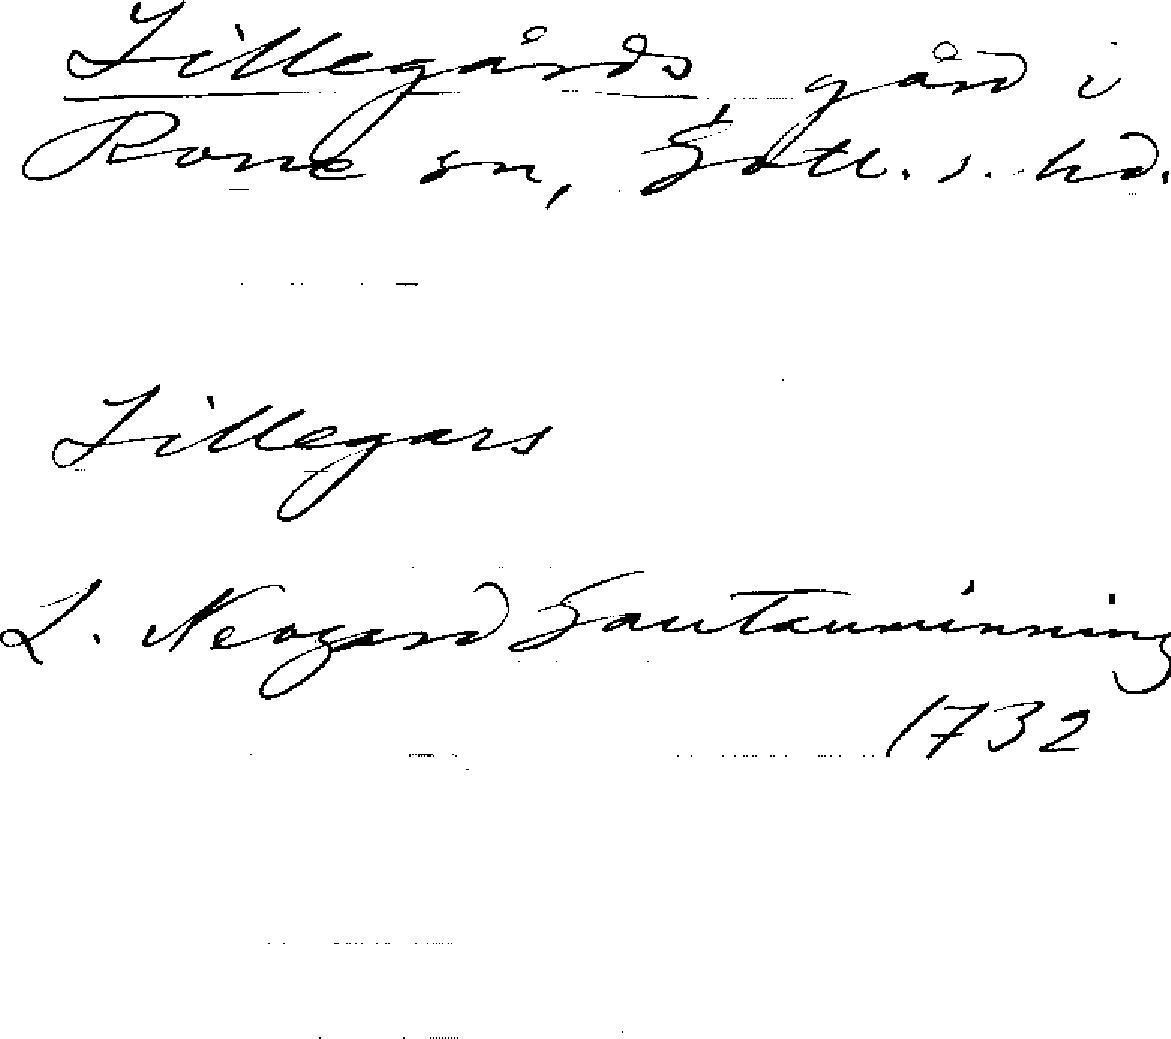 Lillegårds gård i
Rone sn, Gotl. s. hd.
Lillegars
L. Neogard Gautauminning
1732